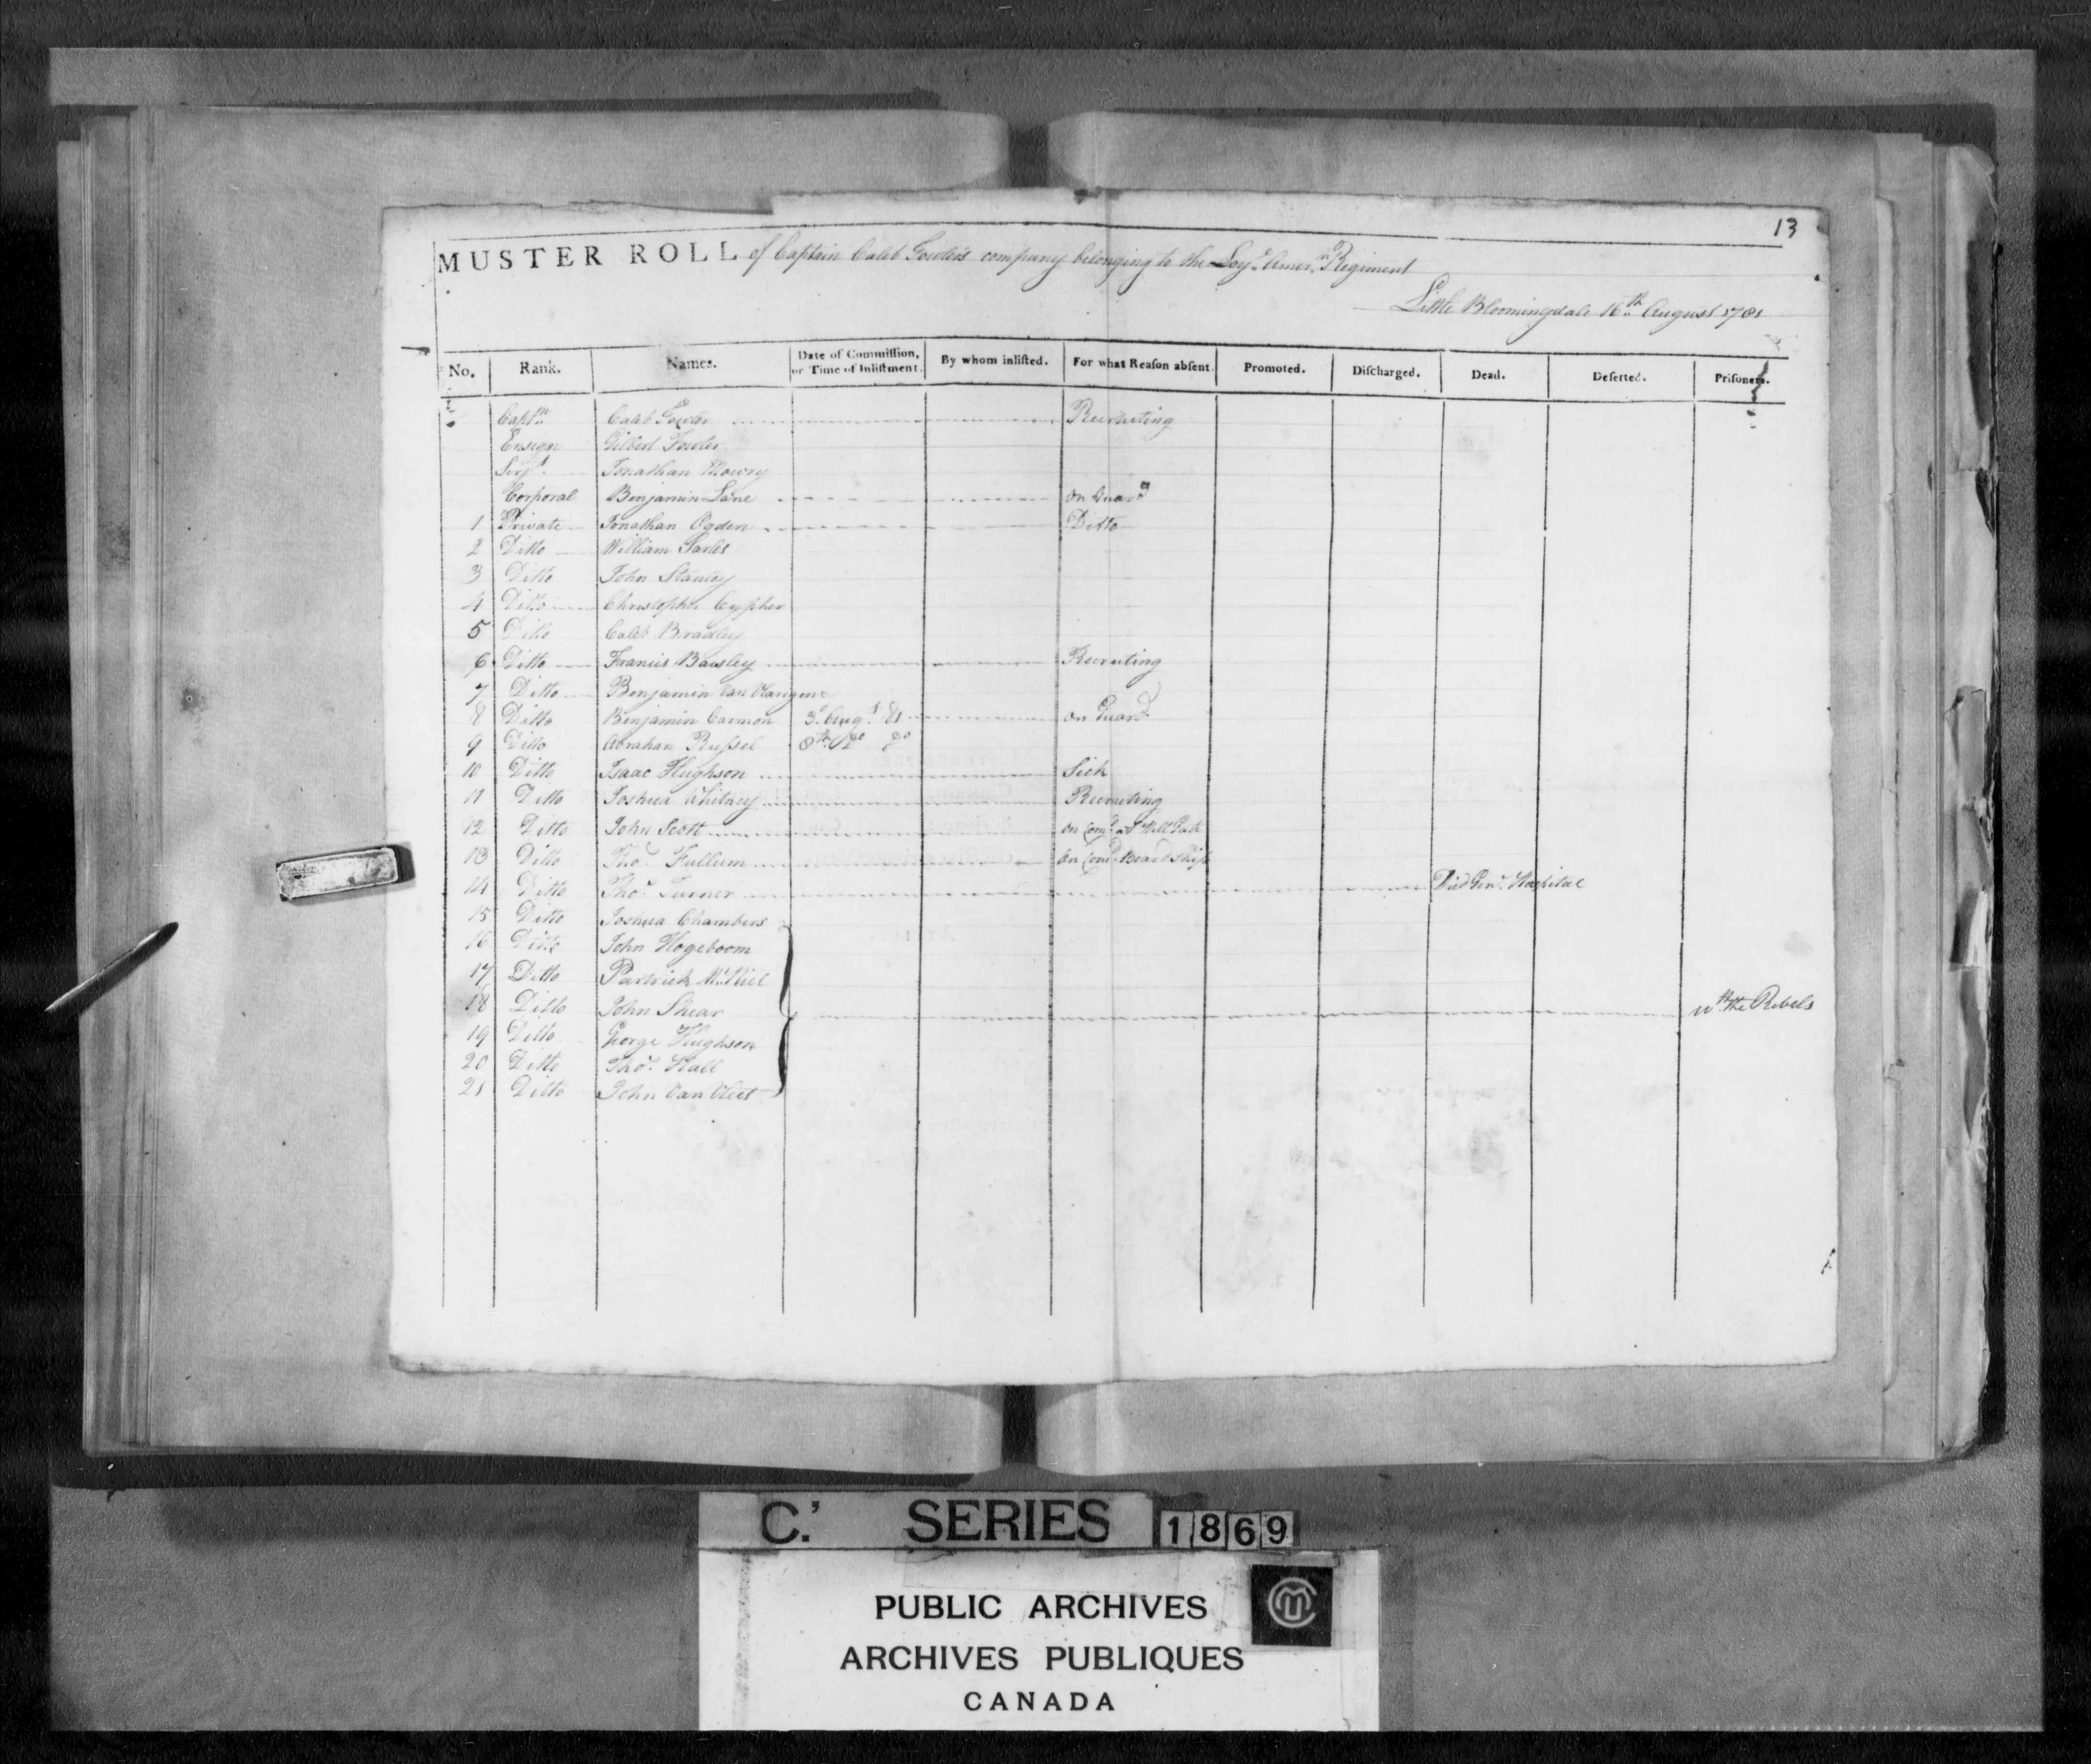 13
MUSTER ROLL of Captain Caleb Fowler's company belonging to the Loyl. Amern. Regiment
Little Bloomingdale 16th August 1781
No. Rank. Names. Date of Commission, or Time of Inlistment. By whom inlisted. For what Reason absent. Promoted. Discharged. Dead. Deserted. Prisoners.
Captn. Caleb Fowler Recruiting
Ensign Gilbert Fowler
Serjt. Jonathan Mowry
Corporal Benjamin Lane on Guard
1 Private Jonathan Ogden Ditto
2 Ditto William Sarles
3 Ditto John Stanley
4 Ditto Christopher Cypher
5 Ditto Caleb Bradley
6 Ditto Francis Bausley Recruiting
7 Ditto Benjamin Van
8 Ditto Benjamin Carmon 3d. Augt. 81 on Guard
9 Ditto Abraham Russel 8th. Do Do
10 Ditto Isaac Hughson Sick
11 Ditto Joshua Whitney Recruiting
12 Ditto John Scott on Comd. at Hell Gate
13 Ditto Thos. Fullum on Comd. Board Ship
14 Ditto Thos. Turner Died Genl. Hospital
15 Ditto Joshua Chambers
16 Ditto John Hogeboom
17 Ditto Partrick McNiel
18 Ditto John Shear wth the Rebels
19 Ditto George Hughson
20 Ditto Thos. Hall
21 Ditto John Van Vleet
C.' SERIES 1869
PUBLIC ARCHIVES
ARCHIVES PUBLIQUES
CANADA